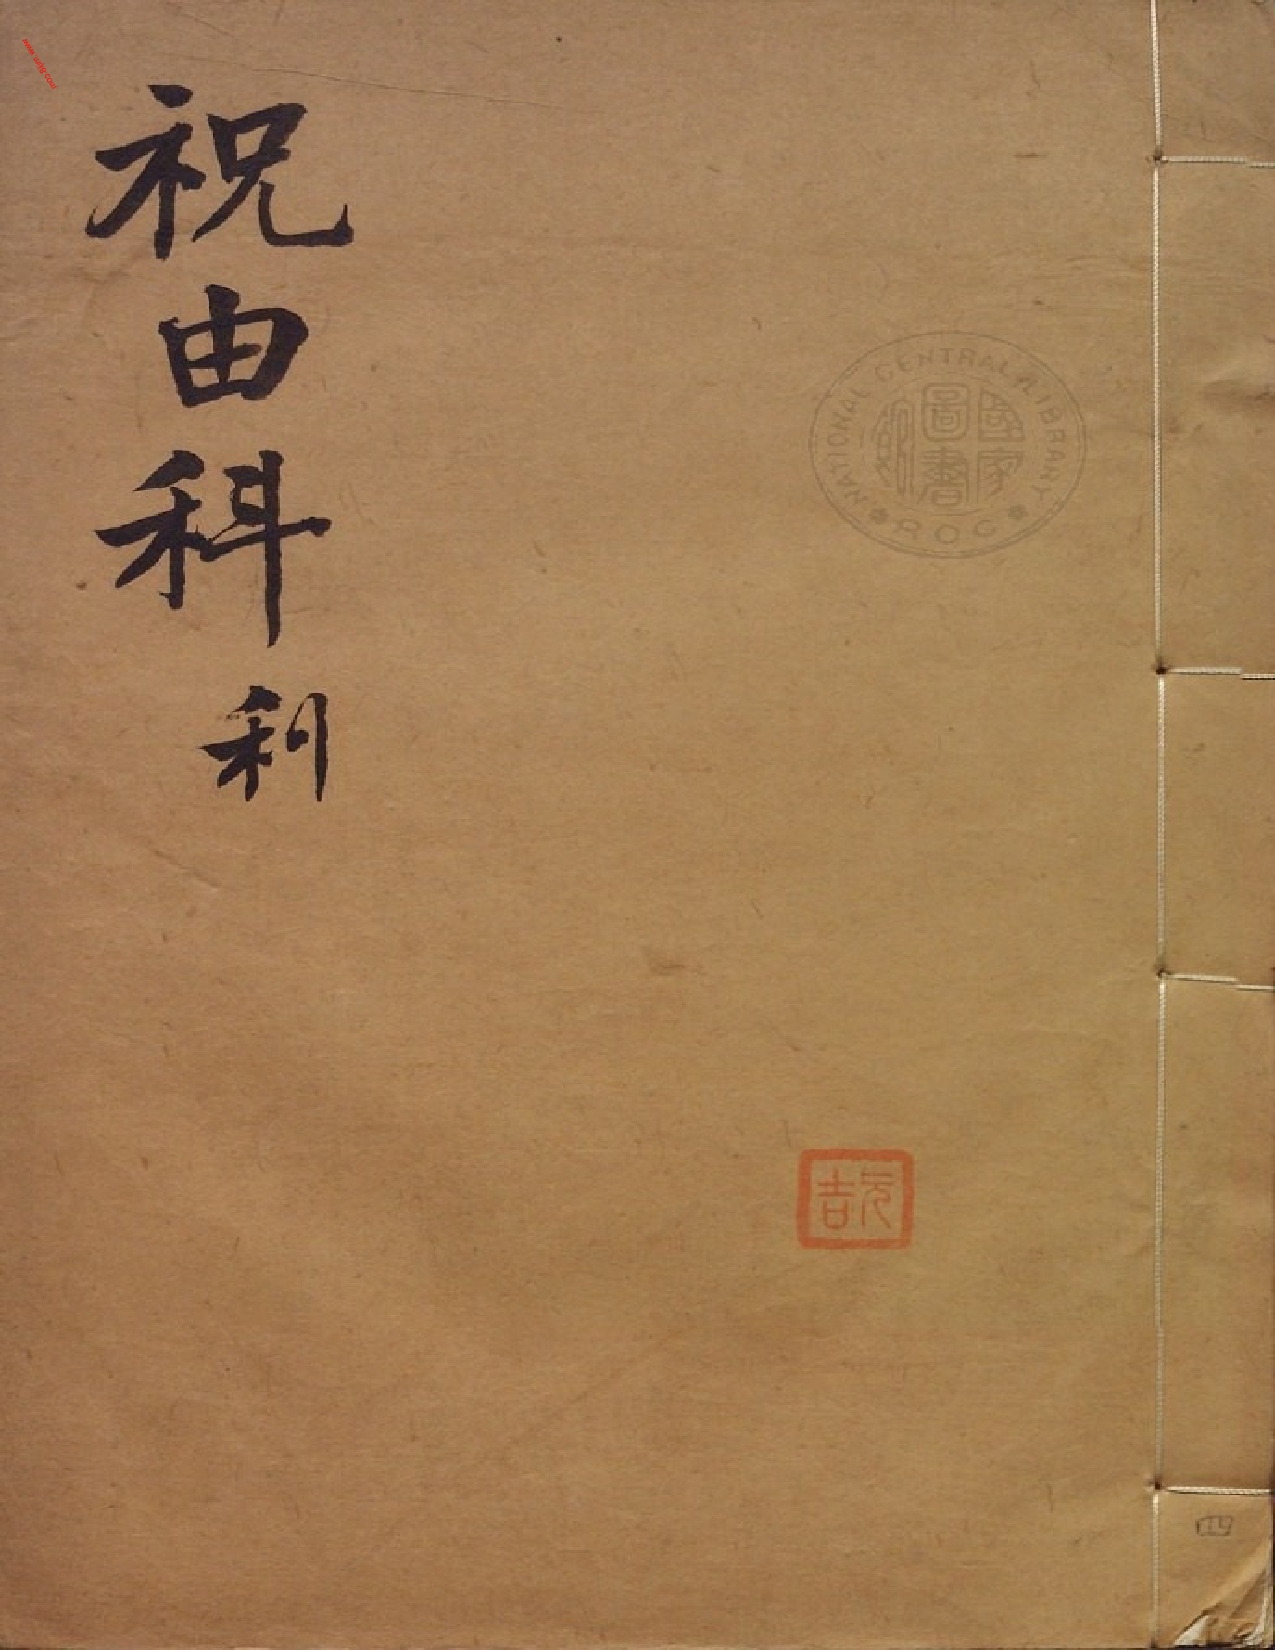 祝由科
利
NATIONAL CENTRAL LIBRARY
國家
圖書
館
ROC
元吉
四